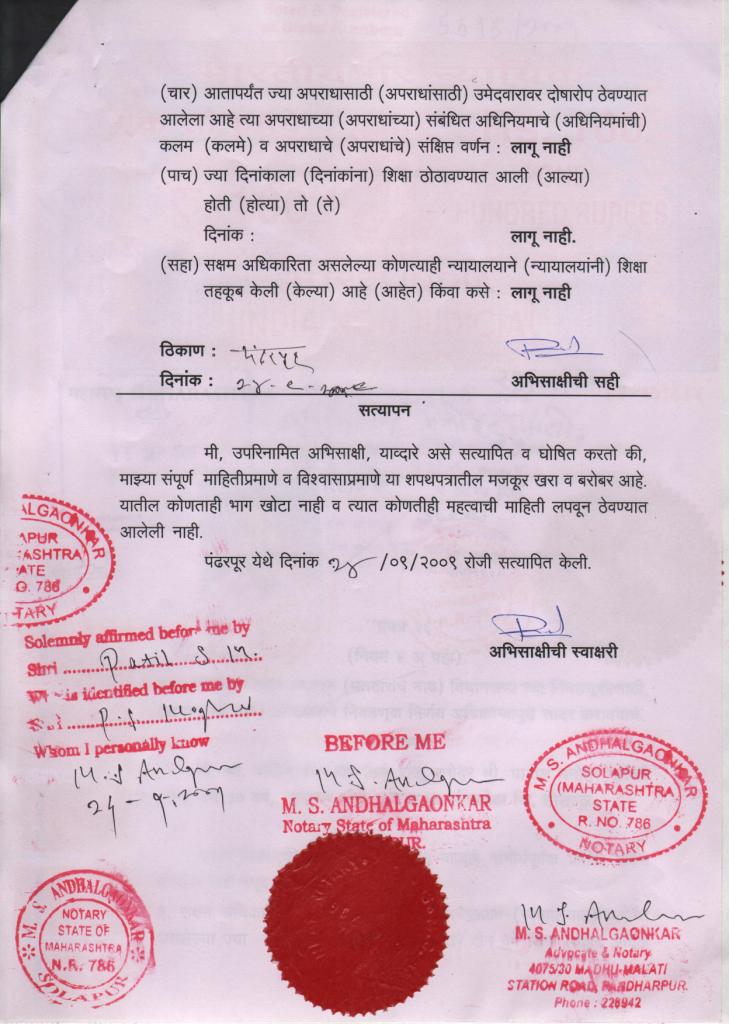 (चार) आतापर्यंत ज्या अपराधासाठी (अपराधांसाठी) उमेदवारावर दोषारोप ठेवण्यात
आलेला आहे त्या अपराधाच्या (अपराधांच्या) संबंधित अधिनियमाचे (अधिनियमांची)
कलम (कलमे) व अपराधाचे (अपराधांचे) संक्षिप्त वर्णन : लागू नाही
(पाच) ज्या दिनांकाला (दिनांकांना) शिक्षा ठोठावण्यात आली (आल्या)
होती (होत्या) तो (ते)
दिनांक : लागू नाही.
(सहा) सक्षम अधिकारिता असलेल्या कोणत्याही न्यायालयाने (न्यायालयांनी) शिक्षा
तहकूब केली (केल्या) आहे (आहेत) किंवा कसे : लागू नाही
ठिकाण : पंढरपूर
दिनांक : २४-९-२००९ अभिसाक्षीची सही
सत्यापन
मी, उपरिनामित अभिसाक्षी, याव्दारे असे सत्यापित व घोषित करतो की,
माझ्या संपूर्ण माहितीप्रमाणे व विश्वासाप्रमाणे या शपथपत्रातील मजकूर खरा व बरोबर आहे.
यातील कोणताही भाग खोटा नाही व त्यात कोणतीही महत्वाची माहिती लपवून ठेवण्यात
आलेली नाही.
पंढरपूर येथे दिनांक २४ /०९/२००९ रोजी सत्यापित केली.
अभिसाक्षीची स्वाक्षरी
ALGAONKAR
APUR
ASHTRA
ATE
O. 786
TARY
Solemnly affirmed before me by
Shri Patil S. M.
is identified before me by
Whom I personally know
M. S. Andhalgaonkar
24-9-2009
BEFORE ME
M. S. ANDHALGAONKAR
Notary State of Maharashtra
PUR.
M. S. ANDHALGAONKAR
SOLAPUR
(MAHARASHTRA
STATE
R. NO. 786
NOTARY
M. S. ANDHALGAONKAR
NOTARY
STATE OF
MAHARASHTRA
N.R. 786
SOLAPUR
M. S. ANDHALGAONKAR
Advocate & Notary
4075/30 MADHU-MALATI
STATION ROAD, PANDHARPUR.
Phone : 226942